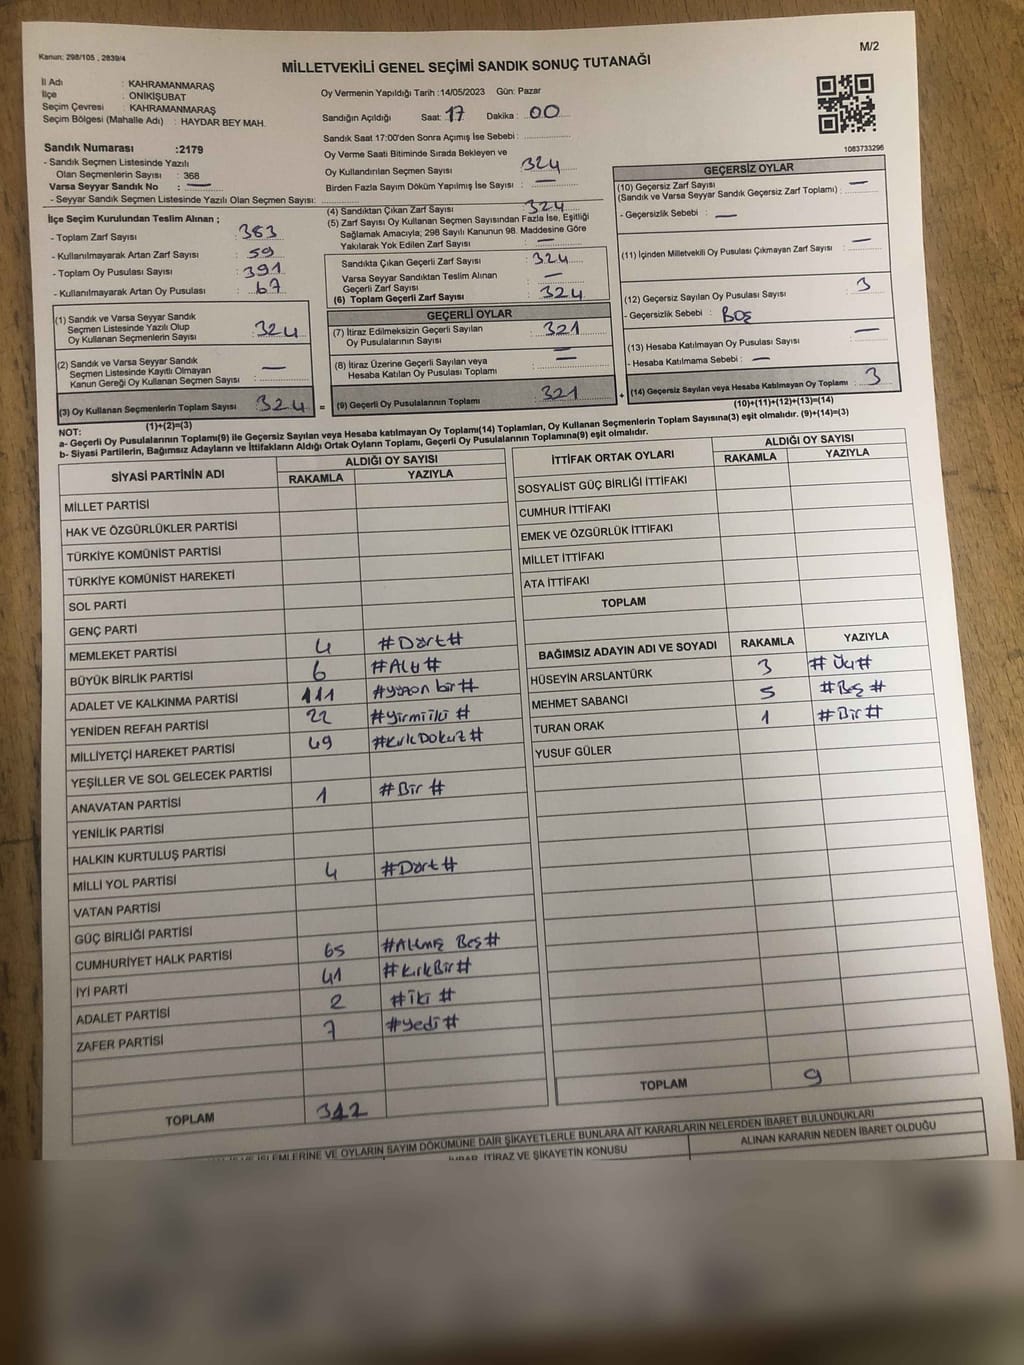 Kanun: 298/105 , 2839/4
M/2
MİLLETVEKİLİ GENEL SEÇİMİ SANDIK SONUÇ TUTANAĞI
İl Adı : KAHRAMANMARAŞ
İlçe : ONİKİŞUBAT
Seçim Çevresi : KAHRAMANMARAŞ
Seçim Bölgesi (Mahalle Adı) : HAYDAR BEY MAH.
Oy Vermenin Yapıldığı Tarih :14/05/2023 Gün: Pazar
Sandığın Açıldığı Saat: 17 Dakika : 00
Sandık Saat 17:00'den Sonra Açımış İse Sebebi :
Oy Verme Saati Bitiminde Sırada Bekleyen ve
Oy Kullandırılan Seçmen Sayısı : 324
Birden Fazla Sayım Döküm Yapılmış İse Sayısı : —
1083733296
Sandık Numarası :2179
- Sandık Seçmen Listesinde Yazılı
Olan Seçmenlerin Sayısı : 368
Varsa Seyyar Sandık No : —
- Seyyar Sandık Seçmen Listesinde Yazılı Olan Seçmen Sayısı:
İlçe Seçim Kurulundan Teslim Alınan ;
- Toplam Zarf Sayısı : 383
- Kullanılmayarak Artan Zarf Sayısı : 59
- Toplam Oy Pusulası Sayısı : 391
- Kullanılmayarak Artan Oy Pusulası : 67
(1) Sandık ve Varsa Seyyar Sandık
Seçmen Listesinde Yazılı Olup
Oy Kullanan Seçmenlerin Sayısı : 324
(2) Sandık ve Varsa Seyyar Sandık
Seçmen Listesinde Kayıtlı Olmayan
Kanun Gereği Oy Kullanan Seçmen Sayısı : —
(3) Oy Kullanan Seçmenlerin Toplam Sayısı : 324 =
(1)+(2)=(3)
(4) Sandıktan Çıkan Zarf Sayısı : 324
(5) Zarf Sayısı Oy Kullanan Seçmen Sayısından Fazla İse, Eşitliği
Sağlamak Amacıyla; 298 Sayılı Kanunun 98. Maddesine Göre
Yakılarak Yok Edilen Zarf Sayısı : —
Sandıkta Çıkan Geçerli Zarf Sayısı : 324
Varsa Seyyar Sandıktan Teslim Alınan
Geçerli Zarf Sayısı : —
(6) Toplam Geçerli Zarf Sayısı : 324
GEÇERLİ OYLAR
(7) İtiraz Edilmeksizin Geçerli Sayılan
Oy Pusulasının Sayısı : 321
(8) İtiraz Üzerine Geçerli Sayılan veya
Hesaba Katılan Oy Pusulası Toplamı : —
(9) Geçerli Oy Pusulalarının Toplamı : 321 +
GEÇERSİZ OYLAR
(10) Geçersiz Zarf Sayısı
(Sandık ve Varsa Seyyar Sandık Geçersiz Zarf Toplamı) : —
- Geçersizlik Sebebi : —
(11) İçinden Milletvekili Oy Pusulası Çıkmayan Zarf Sayısı : —
(12) Geçersiz Sayılan Oy Pusulası Sayısı : 3
- Geçersizlik Sebebi : BOŞ
(13) Hesaba Katılmayan Oy Pusulası Sayısı : —
- Hesaba Katılmama Sebebi : —
(14) Geçersiz Sayılan veya Hesaba Katılmayan Oy Toplamı : 3
(10)+(11)+(12)+(13)=(14)
NOT:
a- Geçerli Oy Pusulalarının Toplamı(9) ile Geçersiz Sayılan veya Hesaba katılmayan Oy Toplamı(14) Toplamları, Oy Kullanan Seçmenlerin Toplam Sayısına(3) eşit olmalıdır. (9)+(14)=(3)
b- Siyasi Partilerin, Bağımsız Adayların ve İttifakların Aldığı Ortak Oyların Toplamı, Geçerli Oy Pusulalarının Toplamına(9) eşit olmalıdır.
SİYASİ PARTİNİN ADI ALDIĞI OY SAYISI
RAKAMLA YAZIYLA
MİLLET PARTİSİ
HAK VE ÖZGÜRLÜKLER PARTİSİ
TÜRKİYE KOMÜNİST PARTİSİ
TÜRKİYE KOMÜNİST HAREKETİ
SOL PARTİ
GENÇ PARTİ
MEMLEKET PARTİSİ 4 #Dört#
BÜYÜK BİRLİK PARTİSİ 6 #Altı#
ADALET VE KALKINMA PARTİSİ 111 #yüzon bir#
YENİDEN REFAH PARTİSİ 22 #Yirmiiki #
MİLLİYETÇİ HAREKET PARTİSİ 49 #Kırk Dokuz #
YEŞİLLER VE SOL GELECEK PARTİSİ
ANAVATAN PARTİSİ 1 #Bir #
YENİLİK PARTİSİ
HALKIN KURTULUŞ PARTİSİ
MİLLİ YOL PARTİSİ 4 #Dört#
VATAN PARTİSİ
GÜÇ BİRLİĞİ PARTİSİ
CUMHURİYET HALK PARTİSİ 65 #Altmış Beş#
İYİ PARTİ 41 #kırkBir#
ADALET PARTİSİ 2 #iki #
ZAFER PARTİSİ 7 #Yedi#
TOPLAM 312
İTTİFAK ORTAK OYLARI ALDIĞI OY SAYISI
RAKAMLA YAZIYLA
SOSYALİST GÜÇ BİRLİĞİ İTTİFAKI
CUMHUR İTTİFAKI
EMEK VE ÖZGÜRLÜK İTTİFAKI
MİLLET İTTİFAKI
ATA İTTİFAKI
TOPLAM
BAĞIMSIZ ADAYIN ADI VE SOYADI RAKAMLA YAZIYLA
HÜSEYİN ARSLANTÜRK 3 # Üç#
MEHMET SABANCI 5 #Beş #
TURAN ORAK 1 #Bir#
YUSUF GÜLER
TOPLAM 9
İŞLEMLERİNE VE OYLARIN SAYIM DÖKÜMÜNE DAİR ŞİKAYETLERLE BUNLARA AİT KARARLARIN NELERDEN İBARET BULUNDUKLARI
İHBAR, İTİRAZ VE ŞİKAYETİN KONUSU ALINAN KARARIN NEDEN İBARET OLDUĞU